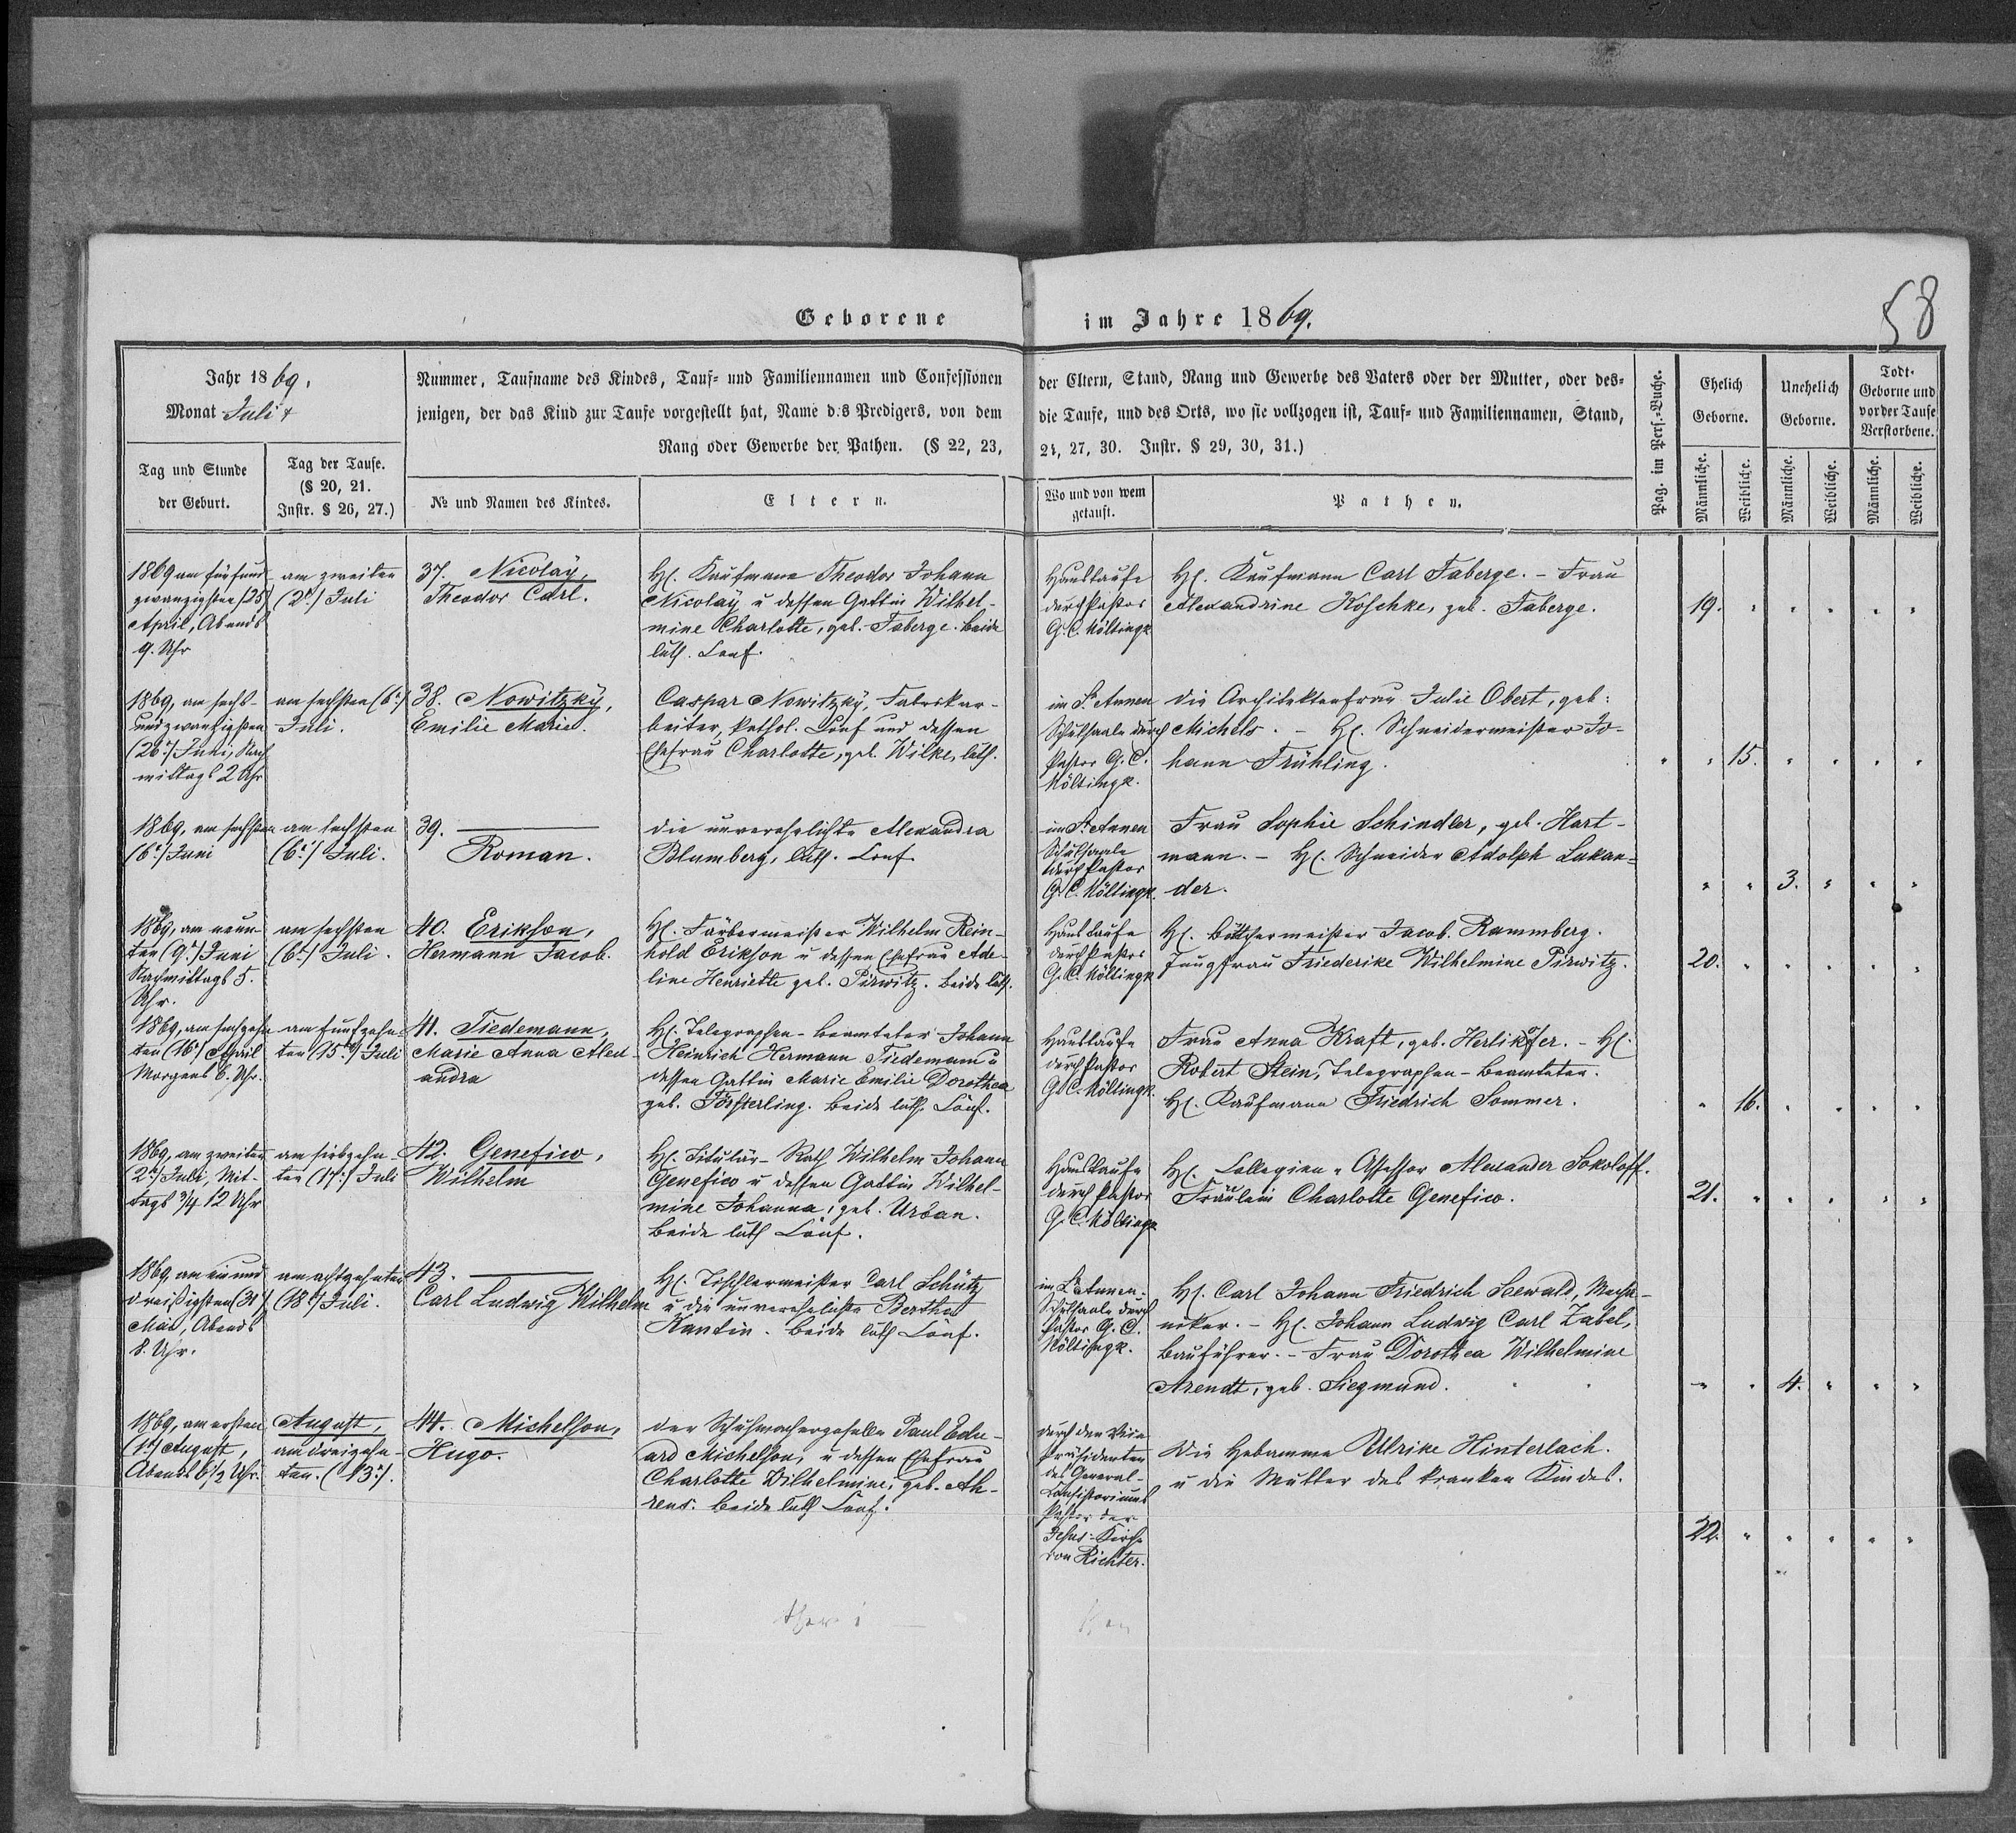 Geborene im Jahre 1869.
58
Jahr 1869.
Monat Juli
Nummer, Taufname des Kindes, Tauf- und Familiennamen und Confessionen der Eltern, Stand, Rang und Gewerbe des Vaters oder der Mutter, oder des-
jenigen, der das Kind zur Taufe vorgestellt hat, Name des Predigers, von dem die Taufe, und des Orts, wo sie vollzogen ist, Tauf- und Familiennamen, Stand,
Rang oder Gewerbe der Pathen. (§ 22, 23, 24, 27, 30. Instr. § 29, 30, 31.)
Tag und Stunde
der Geburt.
Tag der Taufe.
(§ 20, 21.
Instr. § 26, 27.)
№ und Namen des Kindes.
Eltern.
Wo und von wem
getauft.
Pathen.
Pag. im Pers.-Buche.
Ehelich
Geborne.
Unehelich
Geborne.
Todt-
Geborne und
vor der Taufe
Verstorbene.
Männliche.
Weibliche.
Männliche.
Weibliche.
Männliche.
Weibliche.
1869 am fünfund
zwanzigsten (25)
April, Abends
9. Uhr
am zweiten
(2t.) Juli
37. Nicolaÿ,
Theodor Carl.
H. Kaufmann Theodor Johann
Nicolaÿ u dessen Gattin Wilhel-
mine Charlotte, geb. Faberge. beide
luth. Conf.
Haustaufe
durch Pastor
G. C. Nöltingk
H. Kaufmann Carl Faberge. – Frau
Alexandrine Koschke, geb. Faberge.
19.
1869, am sechs-
undzwanzigsten
(26t.) Juni, Nach
mittags 2 Uhr
am sechsten (6t.)
Juli.
38. Nowitzkÿ,
Emilie Marie.
Caspar Nowitzkÿ, Fabrikar-
beiter, kathol. Conf und dessen
Ehefrau Charlotte, geb. Wilke, luth.
im St. Annen
Schulsaale durch
Pastor G. C.
Nöltingk.
die Architektenfrau Julie Obert, geb:
Michels. – H. Schneidermeister Jo-
hann Frühling.
15.
1869, am sechsten
(6t.) Juni
am sechsten
(6t.) Juli.
39. ———
Roman.
die unverehelichte Alexandra
Blumberg, luth. Conf.
im St. Annen
Schulsaale
durch Pastor
G. C. Nöltingk.
Frau Sophie Schindler, geb. Hart-
mann. – H. Schneider Adolph Lukan-
der.
3.
1869, am neun-
ten (9t.) Juni
Nachmittags 5.
Uhr.
am sechsten
(6t.) Juli.
40. Erikson,
Hermann Jacob.
H. Färbermeister Wilhelm Rein-
hold Erikson u dessen Ehefrau Ade-
line Henriette geb. Pirwitz. beide luth.
Haustaufe
durch Pastor
G. C. Nöltingk
H. Böttchermeister Jacob Rammberg.
Jungfrau Friederike Wilhelmine Pirwitz.
20.
1869, am sechzehn
ten (16t.) April
Morgens 6. Uhr.
am fünfzehn-
ten (15t.) Juli
41. Tiedemann,
Marie Anna Alex-
andra
H. Telegraphen-beamteter Johann
Heinrich Hermann Tiedemann u
dessen Gattin Marie Emilie Dorothea
geb. Försterling. beide luth. Conf.
Haustaufe
durch Pastor
G. C. Nöltingk.
Frau Anna Kraft, geb. Herlikofer. – H.
Robert Stein, Telegraphen-Beamteter.
H. Kaufmann Friedrich Sommer.
16.
1869, am zweiten
2t.) Juli, Mit-
tags 3/4 12 Uhr
am siebzehn-
ten (17t.) Juli
42. Genefico,
Wilhelm
H. Titulär-Rath Wilhelm Johann
Genefico u dessen Gattin Wilhel-
mine Johanna, geb. Urban.
beide luth Conf.
Haustaufe
durch Pastor
G. C. Nöltingk
H. Collegien-Assessor Alexander Sokoloff.
Fräulein Charlotte Genefico.
21.
1869, am einund
dreißigsten (31t)
Mai, Abends
8. Uhr.
am achtzehnten
(18t.) Juli.
43. ———
Carl Ludwig Wilhelm
H. Tischlermeister Carl Schütz
u die unverehelichte Bertha
Kantin. beide luth Conf.
im St Annen-
Schulsaale durch
Pastor G. C.
Nöltingk.
H. Carl Johann Friedrich Seewald, Mecha-
niker. – H. Johann Ludwig Carl Zabel,
Bauführer. – Frau Dorothea Wilhelmine
Arendt, geb. Siegmund.
4.
1869, am ersten
(1t.) August,
Abends 6 1/2 Uhr.
August,
am dreizehn-
ten. (13t.).
44. Michelson,
Hugo.
der Schuhmachergeselle Paul Edu-
ard Michelson, u dessen Ehefrau
Charlotte Wilhelmine, geb. Ah-
rens. beide luth Conf.
durch den Vice
Präsidenten
des General-
Consistoriums
Pastor der
Jesus-Kirche
von Richter.
Die Hebamme Ulrike Hinterlach.
u die Mutter des kranken Kindes.
22.